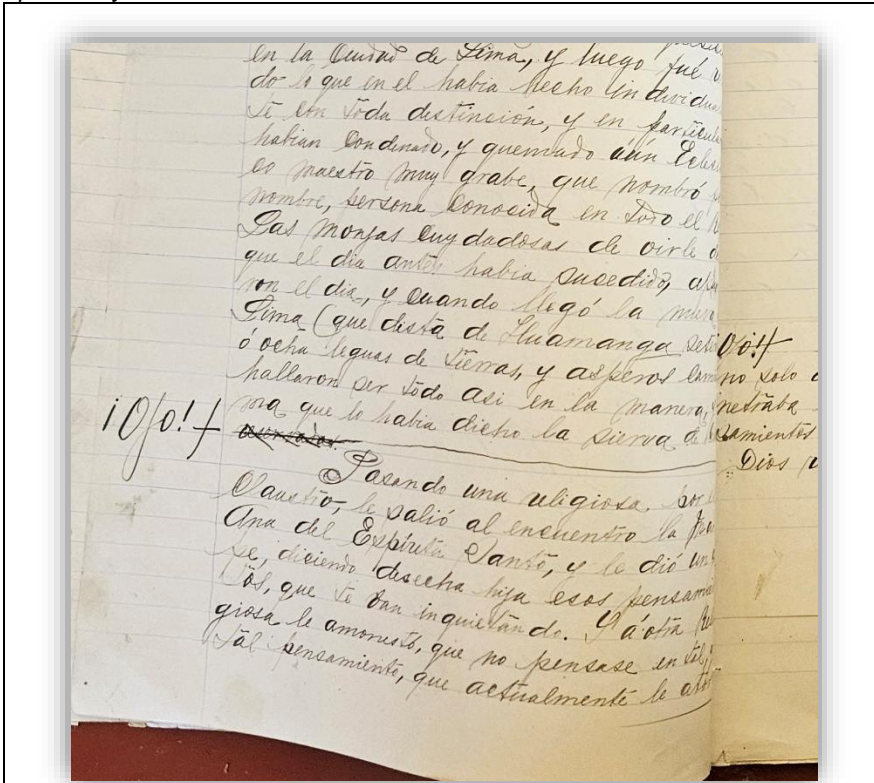 en la Ciudad de Lima, y luego fué
do lo que en el habia hecho individua
te con toda distinción, y en particul
habian condenado, y quemado aún Ecles
co maestro muy grabe, que nombró
nombre, persona conocida en todo el
Las monjas cuydadosas de oirle
que el dia antes habia sucedido,
ron el dia, y cuando llegó la
Lima (que dista de Huamanga sete
ó ocha leguas de tierras, y asperos cam
hallaron ser todo asi en la manera,
ma que lo habia dicho la sierva de
Pasando una religiosa por
Claustro, le salió al encuentro la
Ana del Espíritu Santo, y le dió un
se, diciendo desecha hija esos pensamie
tos, que te ban inquietando. Y á otra Reli
giosa le amonestó, que no pensase en tal
tal pensamiento, que actualmente le
¡Ojo!
Ojo!
no solo
netraba
samientos
Dios